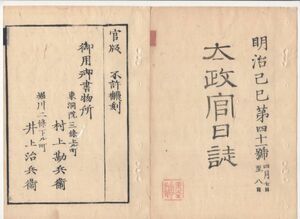 明治己巳第四十一號
四月七日
至八日
太政官日誌
官版 不許飜刻
御用御書物所
東洞院三條上ル町
村上勘兵衞
堀川二條下ル町
井上治兵衞